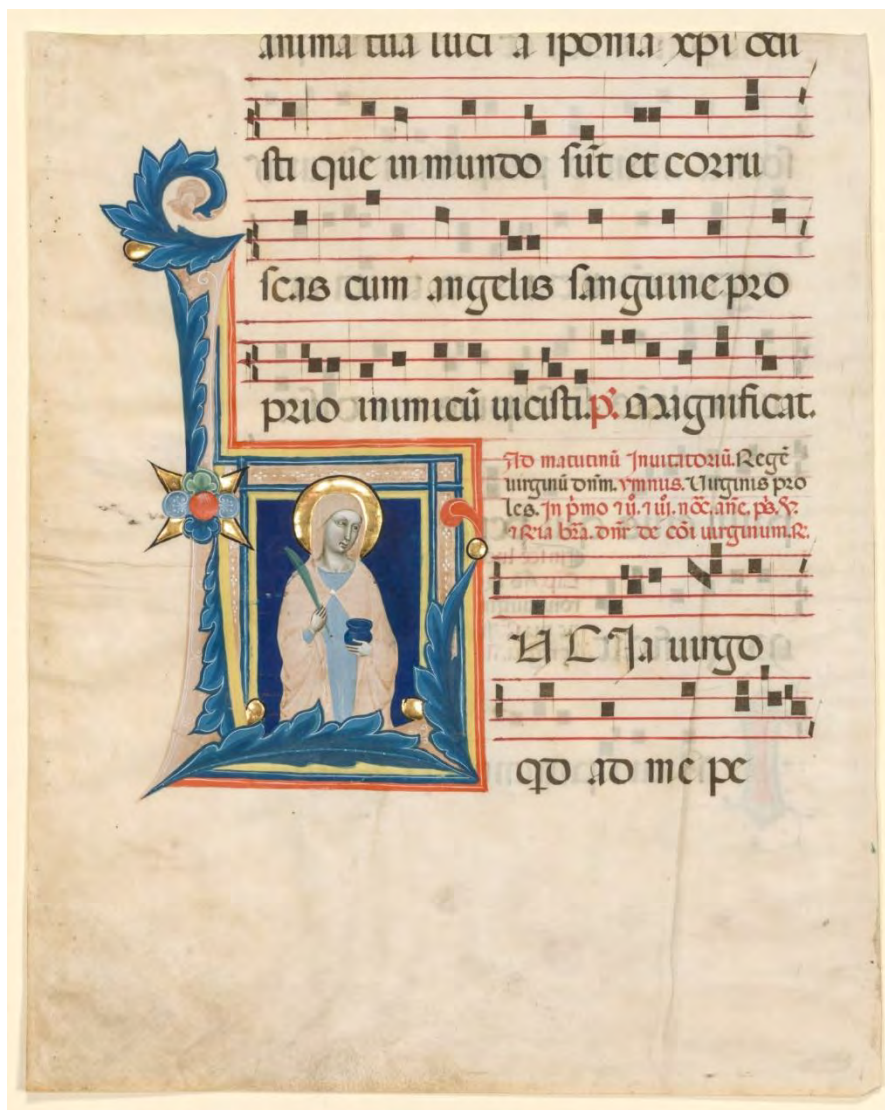 anima tua luci a sponsa xpi odi
sti que in mundo sūt et corru
scas cum angelis sanguine pro
prio inimicū uicisti. p̄. Magnificat.
Ad matutinū Inuitatoriū. Regē
uirginū dn̄m. ymnus. Uirginis pro
les. In p̄mo ⁊ ij. ⁊ iij. nōc. añe. ps̄. ℣.
⁊ Rīa br̄a. dnr̄ de cōi uirginum. ℟.
L U C Ia uirgo
qd ad me pe